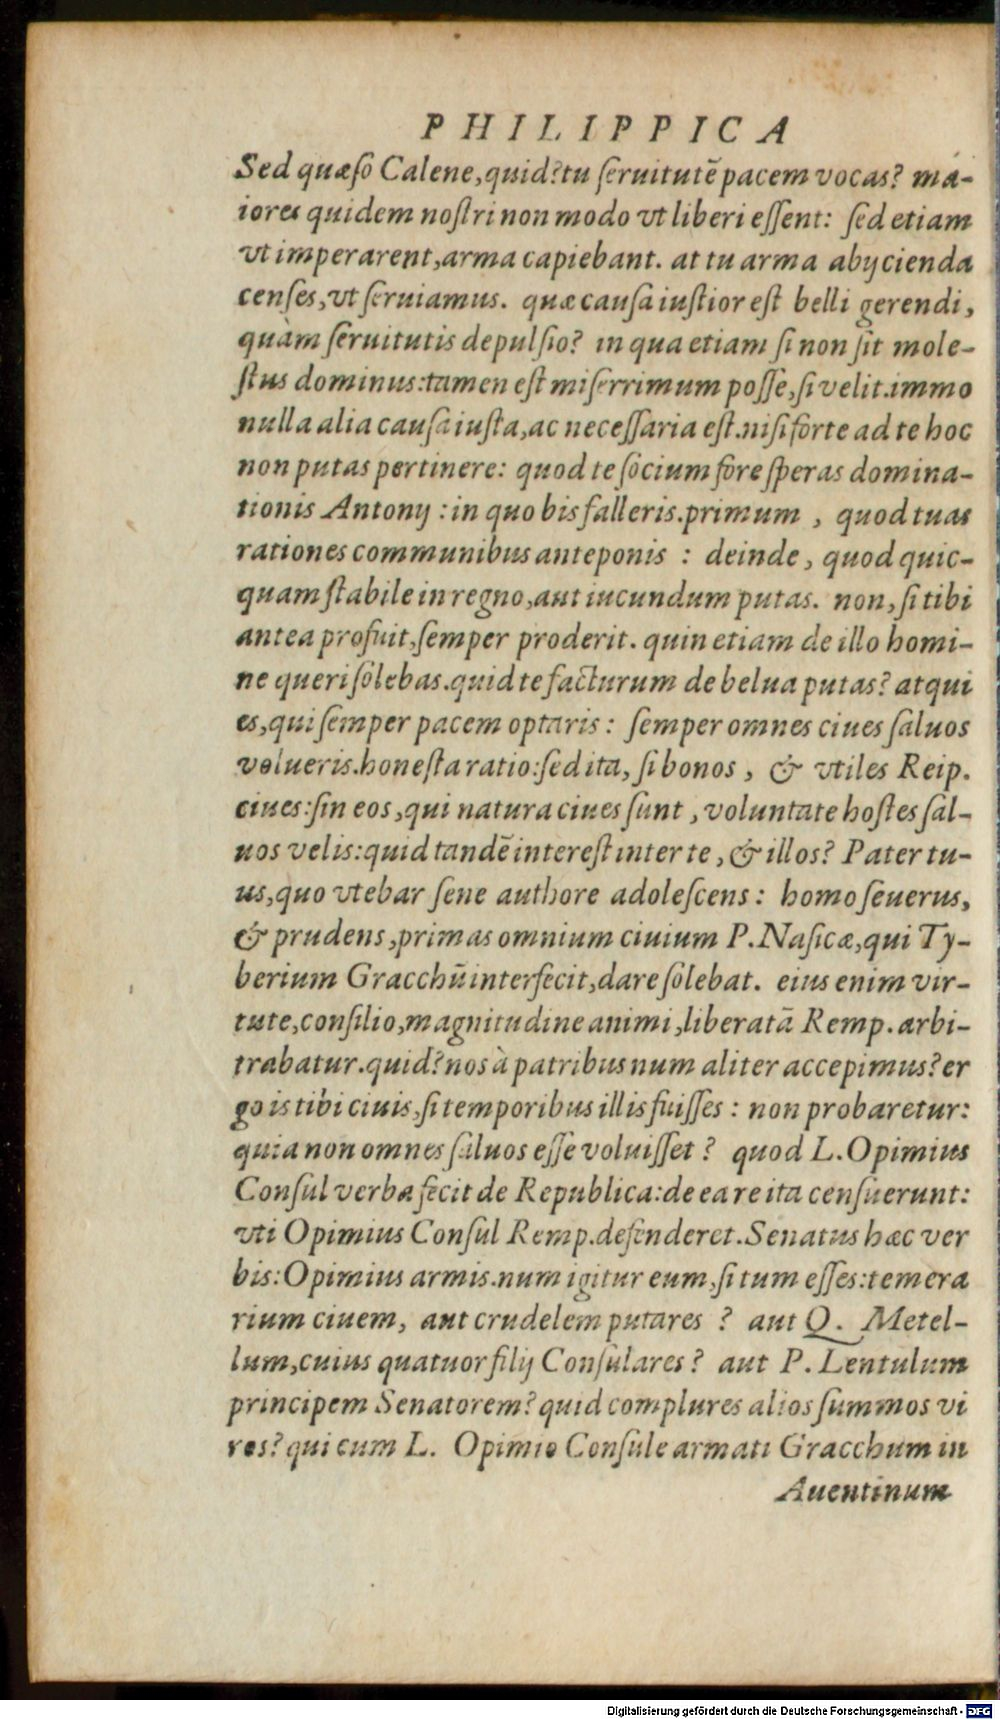 PHILIPPICA
Sed quæſo Calene, quid? tu ſeruitutẽ pacem vocas? má-
iores quidem noſtri non modo vt liberi eſſent: ſed etiam
vt imperarent, arma capiebant. at tu arma abijcienda
cenſes, vt ſeruiamus. quæ cauſa iuſtior eſt belli gerendi,
quàm ſeruitutis depulſio? in qua etiam ſi non ſit mole-
ſtus dominus: tamen eſt miſerrimum poſſe, ſi velit. immo
nulla alia cauſa iuſta, ac neceſſaria eſt. niſi forte ad te hoc
non putas pertinere: quod te ſocium fore ſperas domina-
tionis Antonij: in quo bis falleris. primum, quod tuas
rationes communibus anteponis: deinde, quod quic-
quam ſtabile in regno, aut iucundum putas. non, ſi tibi
antea profuit, ſemper proderit. quin etiam de illo homi-
ne queri ſolebas. quid te facturum de belua putas? atqui
es, qui ſemper pacem optaris: ſemper omnes ciues ſaluos
volueris. honeſta ratio: ſed ita, ſi bonos, & vtiles Reip.
ciues: ſin eos, qui natura ciues ſunt, voluntate hoſtes ſal-
uos velis: quid tandẽ intereſt inter te, & illos? Pater tu-
us, quo vtebar ſene authore adoleſcens: homo ſeuerus,
& prudens, primas omnium ciuium P. Naſicæ, qui Ty-
berium Gracchũ interfecit, dare ſolebat. eius enim vir-
tute, conſilio, magnitudine animi, liberatã Remp. arbi-
trabatur. quid? nos à patribus num aliter accepimus? er
go is tibi ciuis, ſi temporibus illis fuiſſes: non probaretur:
quia non omnes ſaluos eſſe voluiſſet? quod L. Opimius
Conſul verba fecit de Republica: de ea re ita cenſuerunt:
vti Opimius Conſul Remp. defenderet. Senatus hæc ver
bis: Opimius armis. num igitur eum, ſi tum eſſes: temera
rium ciuem, aut crudelem putares? aut Q. Metel-
lum, cuius quatuor filij Conſulares? aut P. Lentulum
principem Senatorem? quid complures alios ſummos vi
ros? qui cum L. Opimio Conſule armati Gracchum in
Auentinum
Digitalisierung gefördert durch die Deutsche Forschungsgemeinschaft - DFG